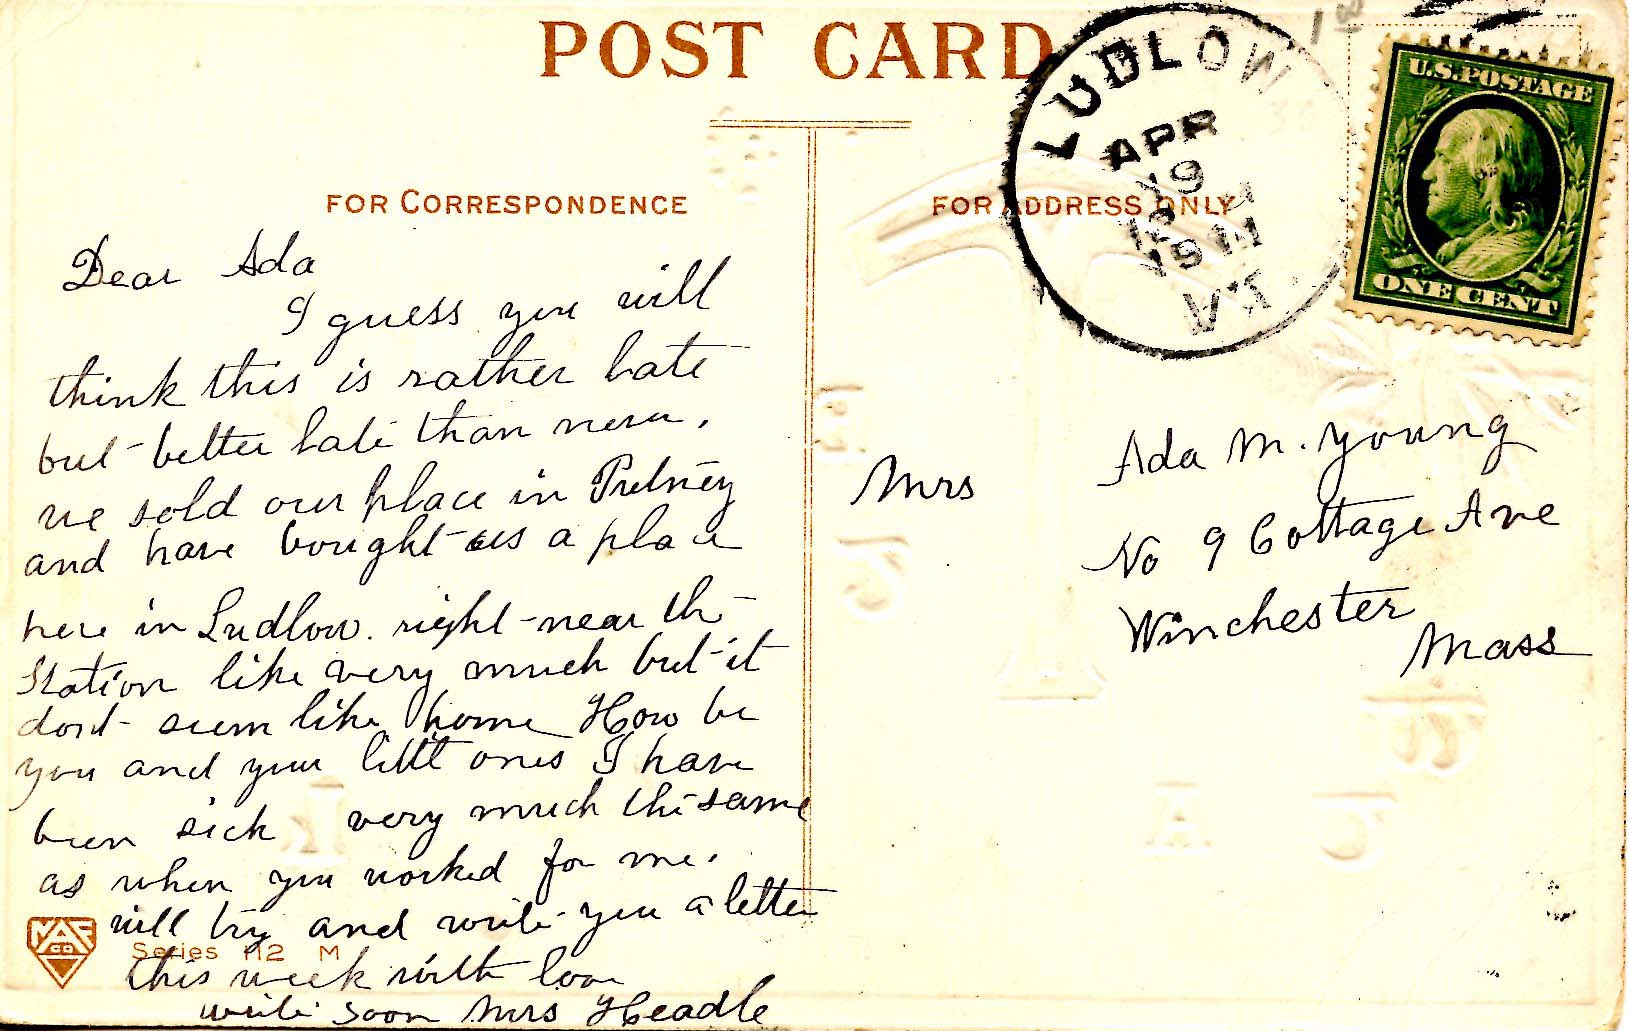 POST CARD
FOR CORRESPONDENCE
FOR ADDRESS ONLY
LUDLOW
APR
19
12 M
1911
VT.
U.S. POSTAGE
ONE CENT
Dear Ada
I guess you will
think this is rather late
but better late than never.
we sold our place in Putney
and have bought us a place
here in Ludlow. right near the
Station like very much but it
dont seem like home How be
you and your little ones I have
been sick very much the same
as when you worked for me.
will try and write you a letter
this week with love
write soon Mrs Headle
Series 112 M
Mrs Ada M. Young
No 9 Cottage Ave
Winchester
Mass